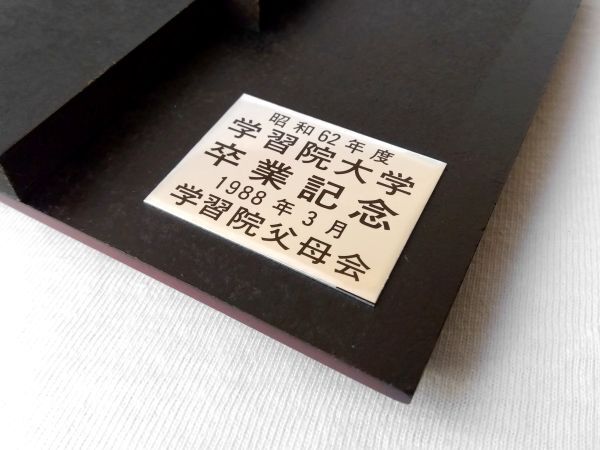 昭和62年度
学習院大学
卒業記念
1988年3月
学習院父母会